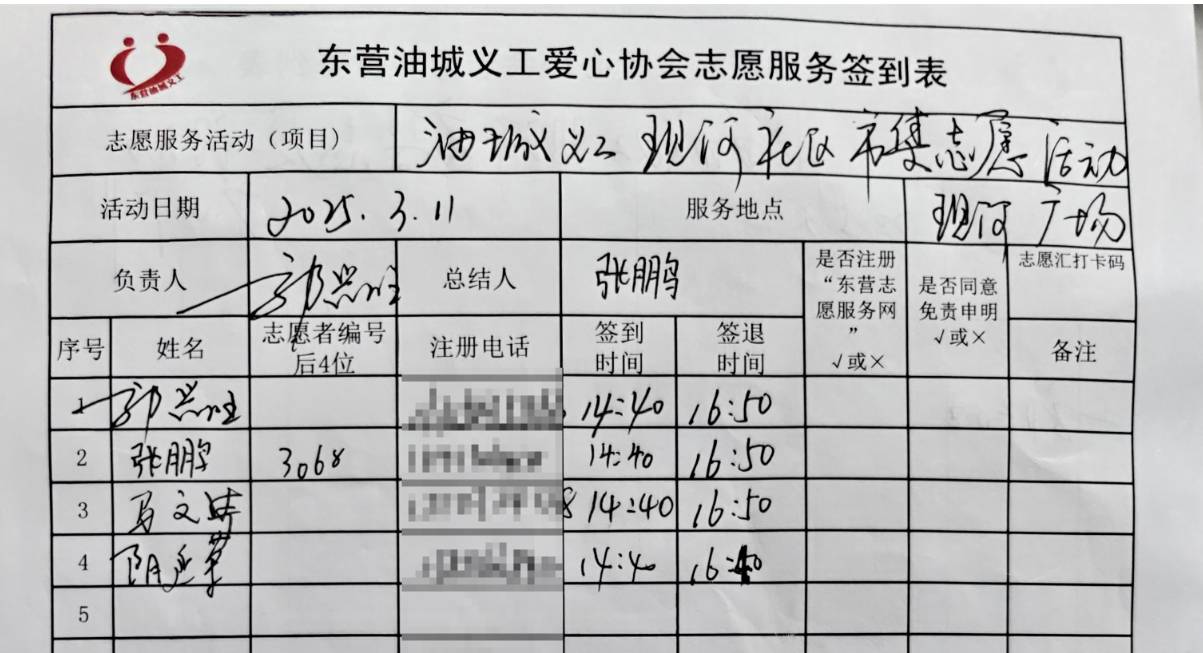 东营油城义工
东营油城义工爱心协会志愿服务签到表
志愿服务活动（项目） 油城义工 现河社区 市集志愿活动
活动日期 2025.3.11 服务地点 现河广场
负责人 总结人 张鹏 是否注册“东营志愿服务网” √或× 是否同意免责申明 √或× 志愿汇打卡码
序号 姓名 志愿者编号后4位 注册电话 签到时间 签退时间 备注
1 14:40 16:50
2 张鹏 3068 14:40 16:50
3 马文 8 14:40 16:50
4 14:40 16:
5